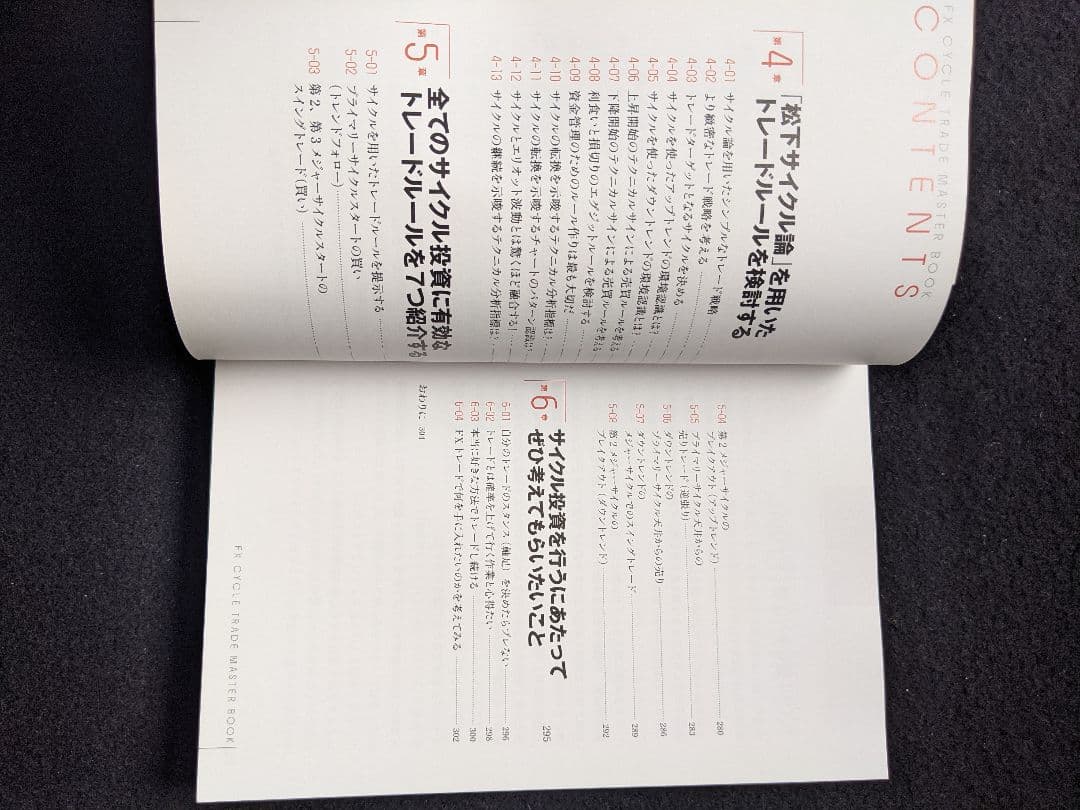 FX CYCLE TRADE MASTER BOOK
CONTENTS
第4章
「松下サイクル論」を用いた
トレードルールを検討する
4-01 サイクル論を用いたシンプルなトレード戦略
4-02 より緻密なトレード戦略を考える
4-03 トレードターゲットとなるサイクルを決める
4-04 サイクルを使ったアップトレンドの環境認識とは?
4-05 サイクルを使ったダウントレンドの環境認識とは?
4-06 上昇開始のテクニカルサインによる売買ルールを考える
4-07 下降開始のテクニカルサインによる売買ルールを考える
4-08 利食いと損切りのエグジットルールを検討する
4-09 資金管理のためのルール作りは最も大切だ
4-10 サイクルの転換を示唆するテクニカル分析指標は?
4-11 サイクルの転換を示唆するチャートのパターン認識は?
4-12 サイクルとエリオット波動とは驚くほど融合する!
4-13 サイクルの継続を示唆するテクニカル分析指標は?
第5章
全てのサイクル投資に有効な
トレードルールを7つ紹介する
5-01 サイクルを用いたトレードルールを提示する
5-02 プライマリーサイクルスタートの買い
(トレンドフォロー)
5-03 第2、第3メジャーサイクルスタートの
スイングトレード(買い)
5-04 第2メジャーサイクルの
ブレイクアウト(アップトレンド) 280
5-05 プライマリーサイクル天井からの
売りトレード(逆張り) 283
5-06 ダウントレンドの
プライマリーサイクル天井からの売り 286
5-07 ダウントレンドの
メジャーサイクルでのスイングトレード 289
5-08 第2メジャーサイクルの
ブレイクアウト(ダウントレンド) 292
第6章
サイクル投資を行うにあたって
ぜひ考えてもらいたいこと 295
6-01 自分のトレードのスタンス(軸足)を決めたらブレない 296
6-02 トレードとは確率を上げて行く作業と心得たい 298
6-03 本当に好きな方法でトレードし続ける 300
6-04 FXトレードで何を手に入れたいのかを考えてみる 302
おわりに 304
FX CYCLE TRADE MASTER BOOK